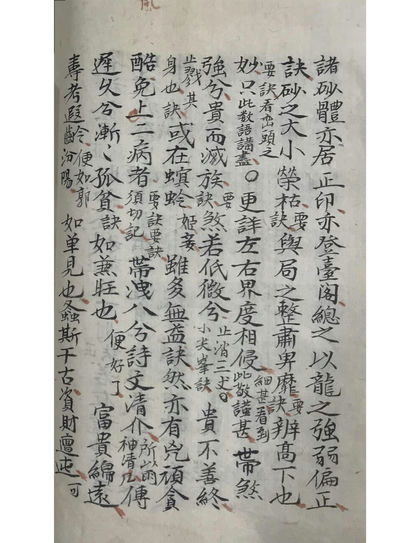 諸砂體亦居正印亦登臺閣總之以龍之強弱偏正
訣砂之大小榮枯要訣與局之整肅卑靡要訣辨高下也
要訣看巒頭之妙只此数語講盡○更詳左右界度相侵此敬謹甚細甚看到帶煞
強兮貴而滅族訣煞若低微兮止消三丈○小尖峯訣貴不善終
止戮其身也訣或在螟蛉姬妾雖多無益訣然亦有兇頑貪
酷免上二病者須切記要訣要訣帶洩八分詩文清介所以神清氣傳
遲久兮漸〻孤貧訣如兼旺也便好了富貴綿遠
壽考遐齡令便如郭汾陽如单見也螽斯千古資財邅迍可